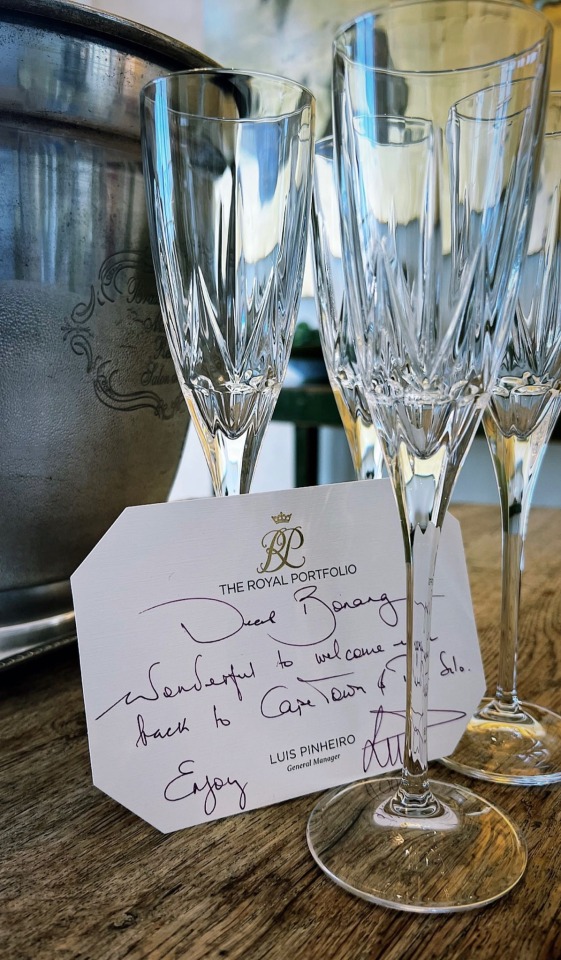 RP
THE ROYAL PORTFOLIO
Dear Bonang
Wonderful to welcome
back to Cape Town & Silo.
LUIS PINHEIRO
General Manager
Enjoy